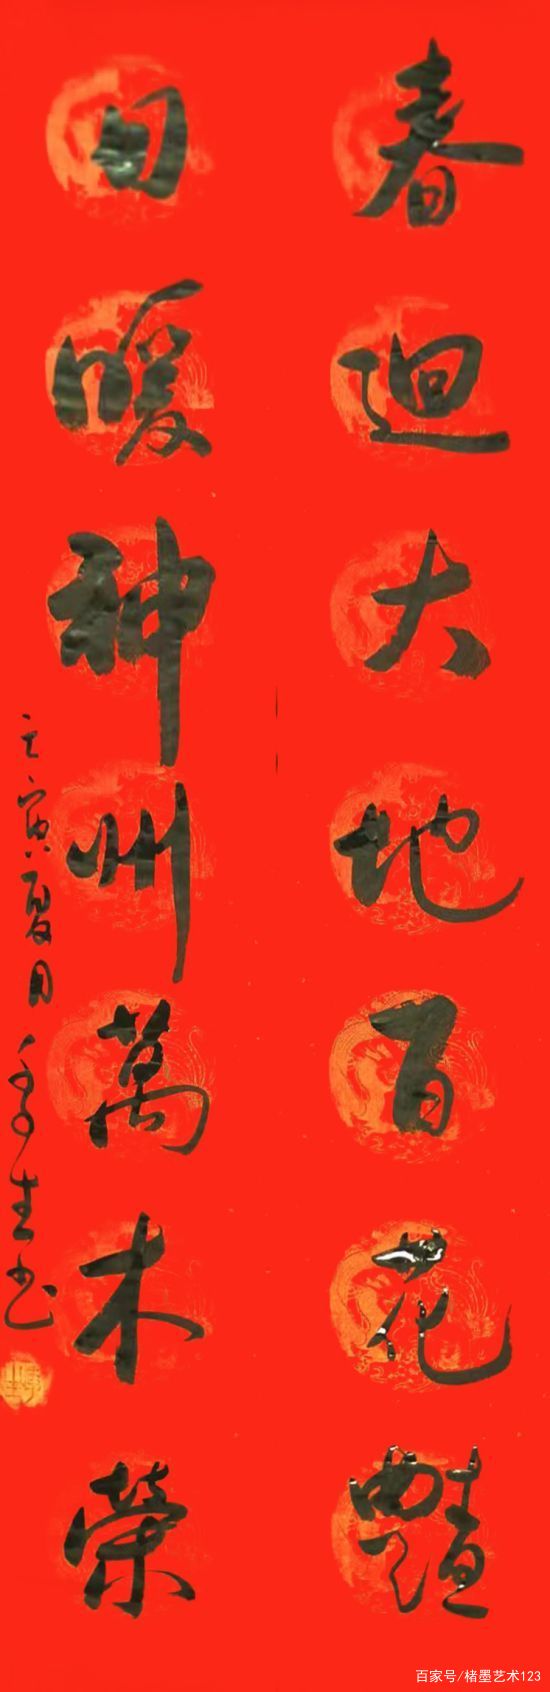 春迴大地百花艷
日暖神州萬木榮
壬寅夏月季生书
百家号/楮墨艺术123